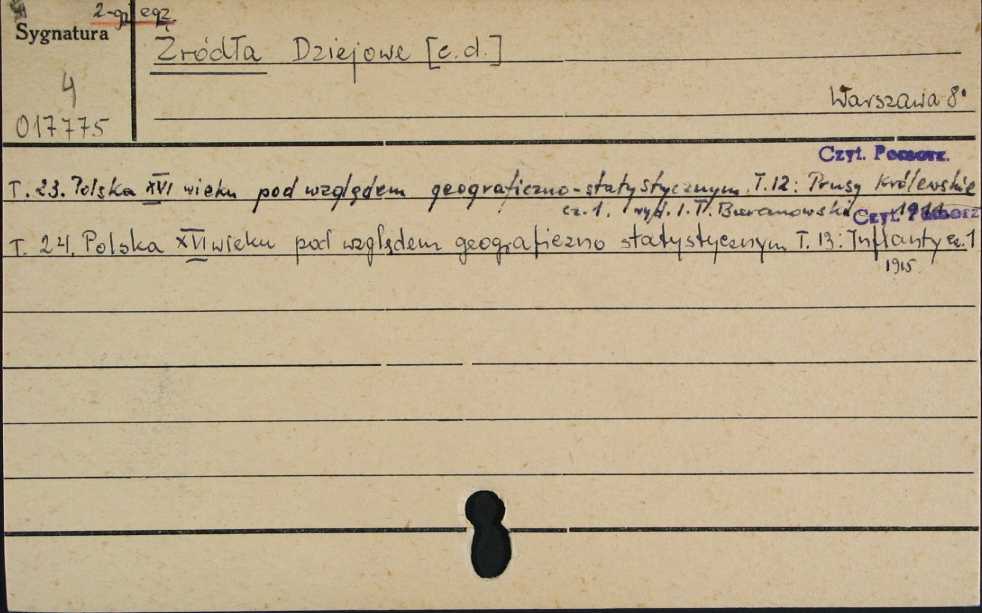 2-gi egz.
Sygnatura
Źródła Dziejowe [c.d.]
4
Warszawa 8°
017775
Czyt. Pomorz.
T. 23. Polska XVI wieku pod względem geograficzno-statystycznym. T.12: Prusy Królewskie
cz. 1. wyd. I. T. Baranowski 1911
Czyt. Pomorz
T. 24. Polska XVI wieku pod względem geograficzno statystycznym T. 13: Inflanty cz. 1
1915